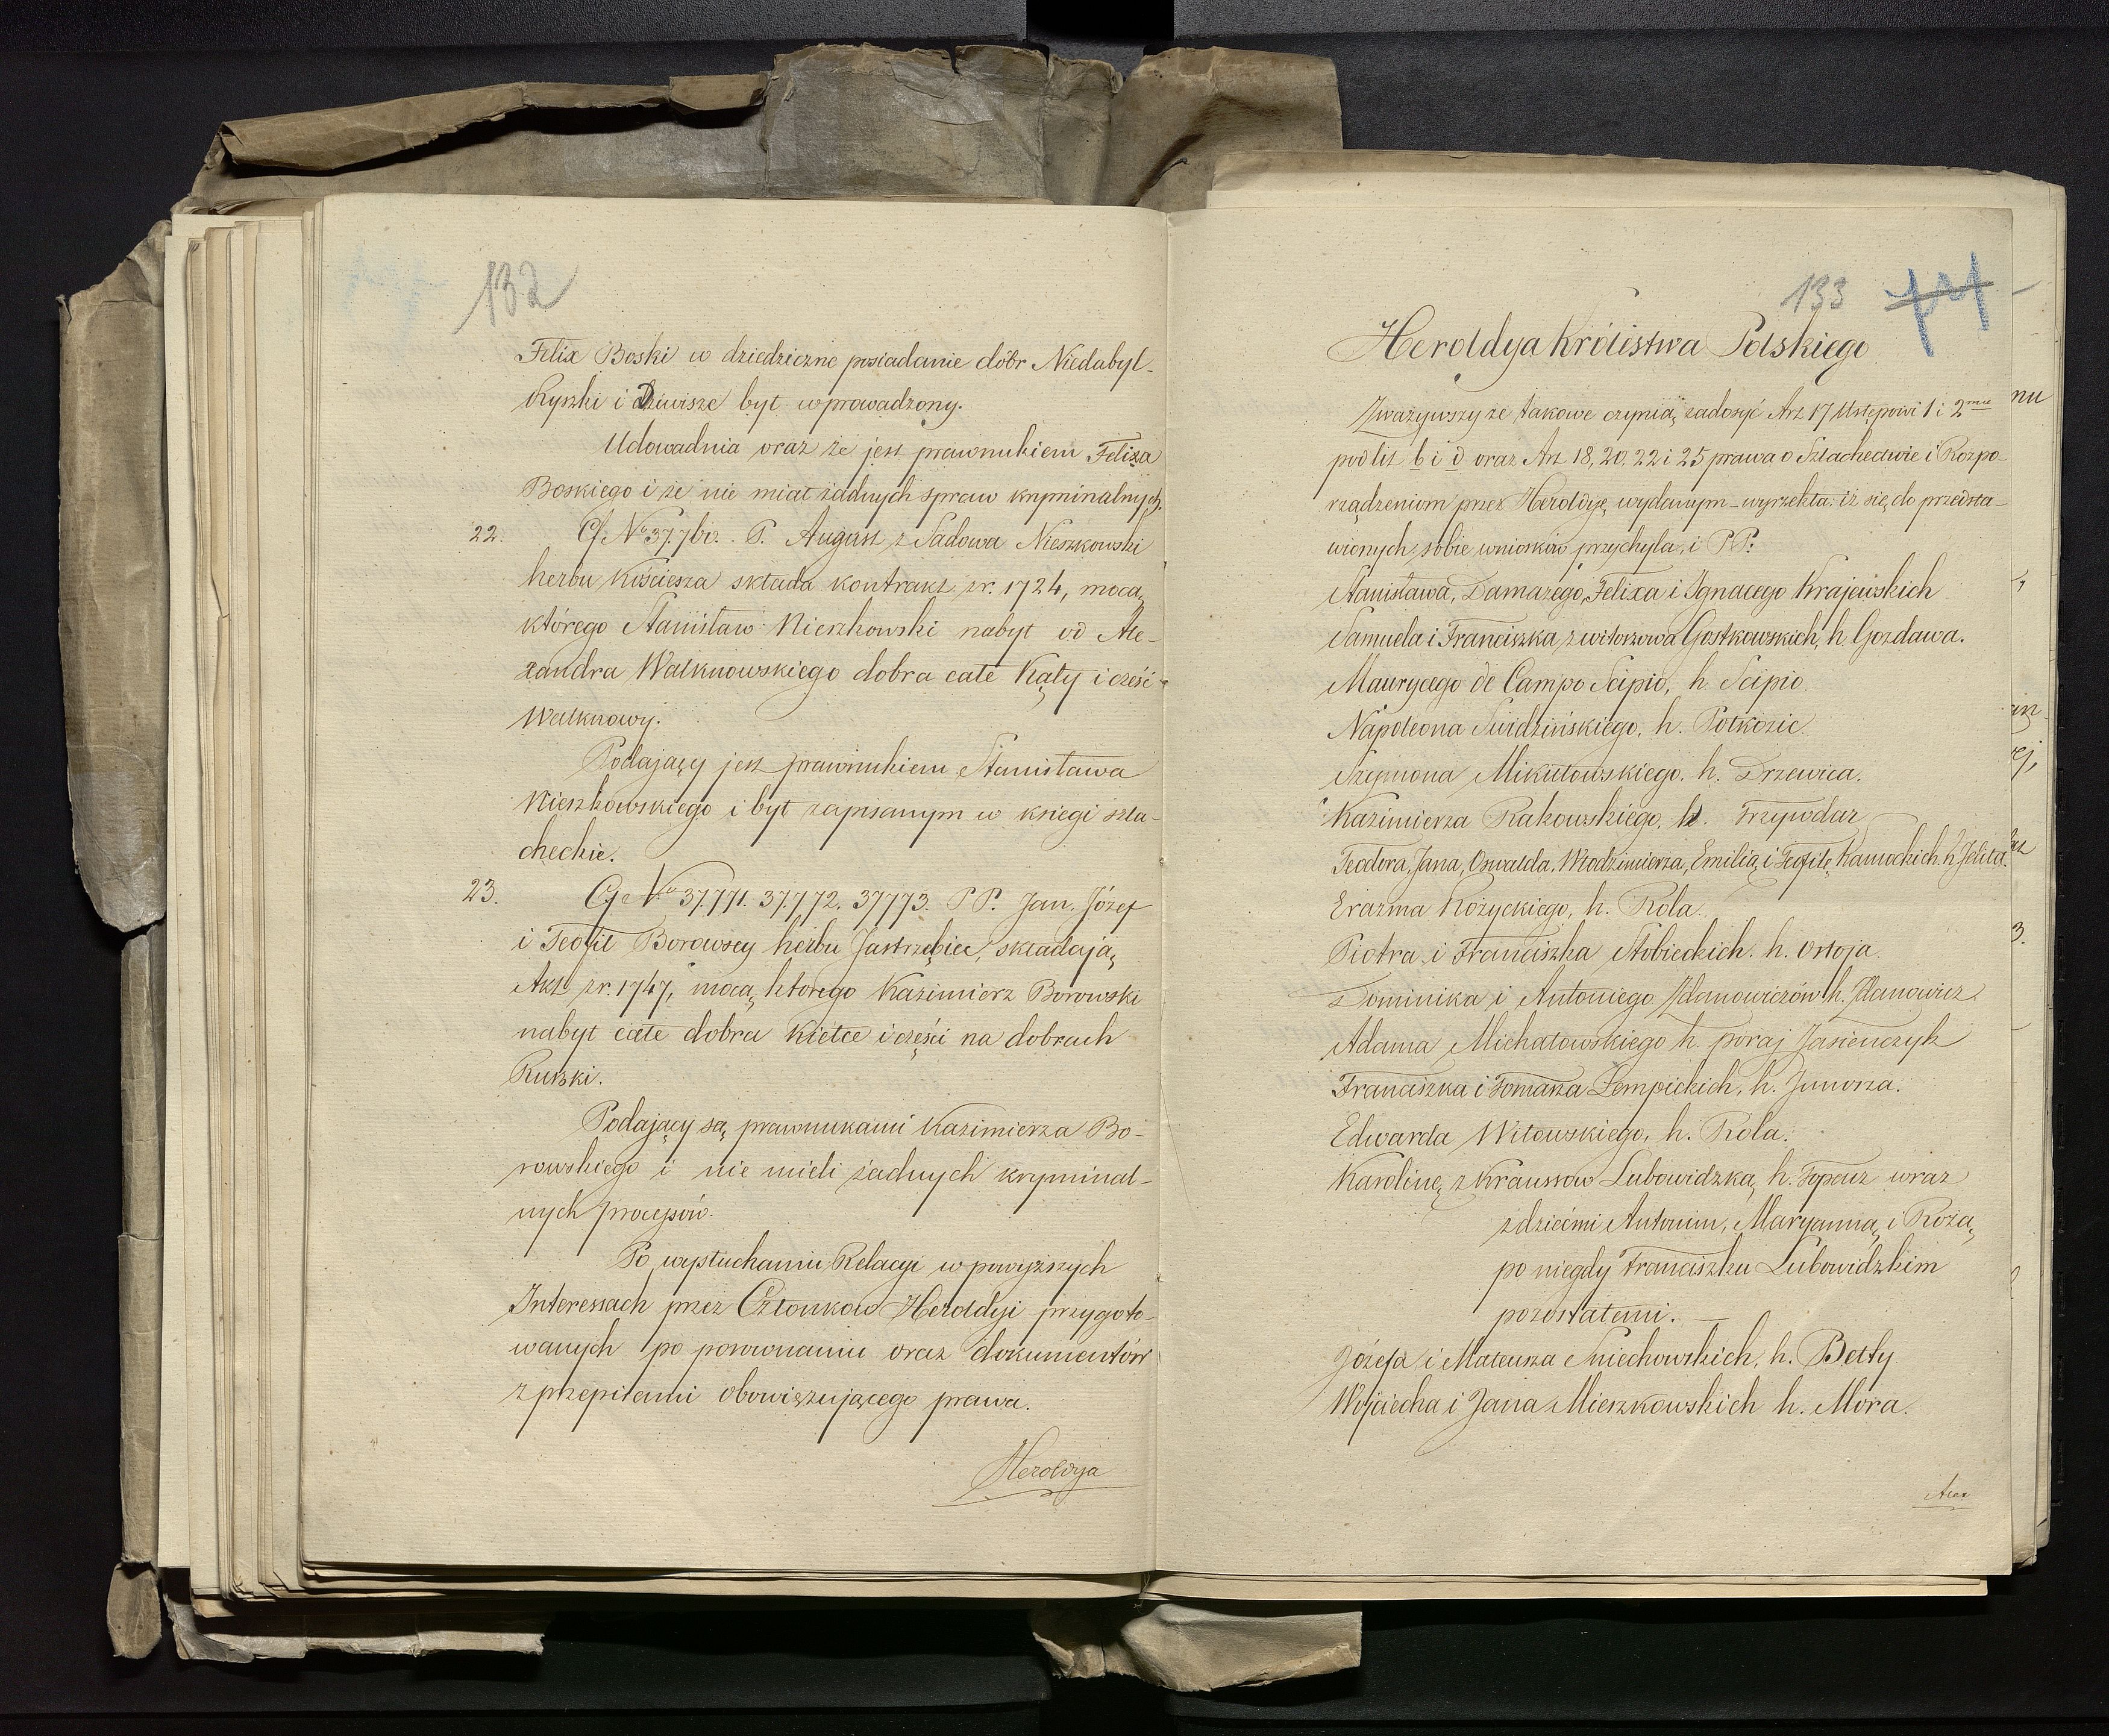 132
Felix Boski w dziedziczne posiadanie dóbr Niedabyl-
Ryszki i Dziwisze był wprowadzony.
Udowadnia oraz że jest prawnukiem Felixa
Boskiego i że nie miał żadnych spraw kryminalnych.
22. Cf. No 37.760. P. August z Sadowa Nieszkowski
herbu Kościesza składa kontrakt z r. 1724, mocą
którego Stanisław Nieszkowski nabył od Ale-
xandra Walknowskiego dobra całe Kąty i cześć
Walknowy.
Podający jest prawnukiem Stanisława
Nieszkowskiego i był zapisanym w księgi szla-
checkie.
23. No 37.771. 37.772. 37773. PP. Jan, Józef
i Teofil Borowscy herbu Jastrzębiec, składają
Akt z r. 1747, mocą którego Kazimierz Borowski
nabył całe dobra Kietce i części na dobrach
Rurski.
Podający są prawnukami Kazimierza Bo-
rowskiego i nie mieli żadnych kryminal-
nych processów.
Po wysłuchaniu Relacyi w powyższych
Interessach przez Członków Heroldyi przygoto-
wanych po porównaniu oraz dokumentów
z przepisami obowiązującego prawa.
Heroldya
133
Heroldya Królestwa Polskiego
Zważywszy że takowe czynią zadosyć Art 17 Ustępowi 1 i 2mu
pod lit b i d oraz Art 18, 20. 22 i 25 prawa o Szlachectwie i Rozpo-
rządzeniom przez Heroldyę wydanym – wyrzekła: iż się do przedsta-
wionych sobie wniosków przychyla, i PP:
Stanisława, Damazego, Felixa i Ignacego Krajewskich
Samuela i Franciszka z witoszowa Gostkowskich, h. Gozdawa.
Maurycego de Campo Scipio, h. Scipio.
Napoleona Świdzińskiego, h. Połkozic.
Szymona Mikułowskiego. h. Drzewica.
Kazimierza Rakowskiego, h. Trzywdar
Teodora, Jana, Oswalda, Włodzimierza, Emilią i Teofilę Kamockich h. Jelita.
Erazma Kożyckiego, h. Rola.
Piotra i Franciszka Stobieckich. h. Ostoja.
Dominika i Antoniego Zdanowiczów h. Zdanowicz.
Adama Michałowskiego h. poraj Jasieńczyk
Franciszka i Tomasza Łempickich, h. Junosza.
Edwarda Witowskiego, h. Rola.
Karolinę z Kraussow Lubowidzką h. Topacz wraz
z dziećmi Antonim, Maryanną i Rożą
po niegdy Franciszku Lubowidzkim
pozostałemi. —
Józefa i Mateusza Śniechowskich, h. Bełty.
Wojciecha i Jana Mierzkowskich h. Mora.